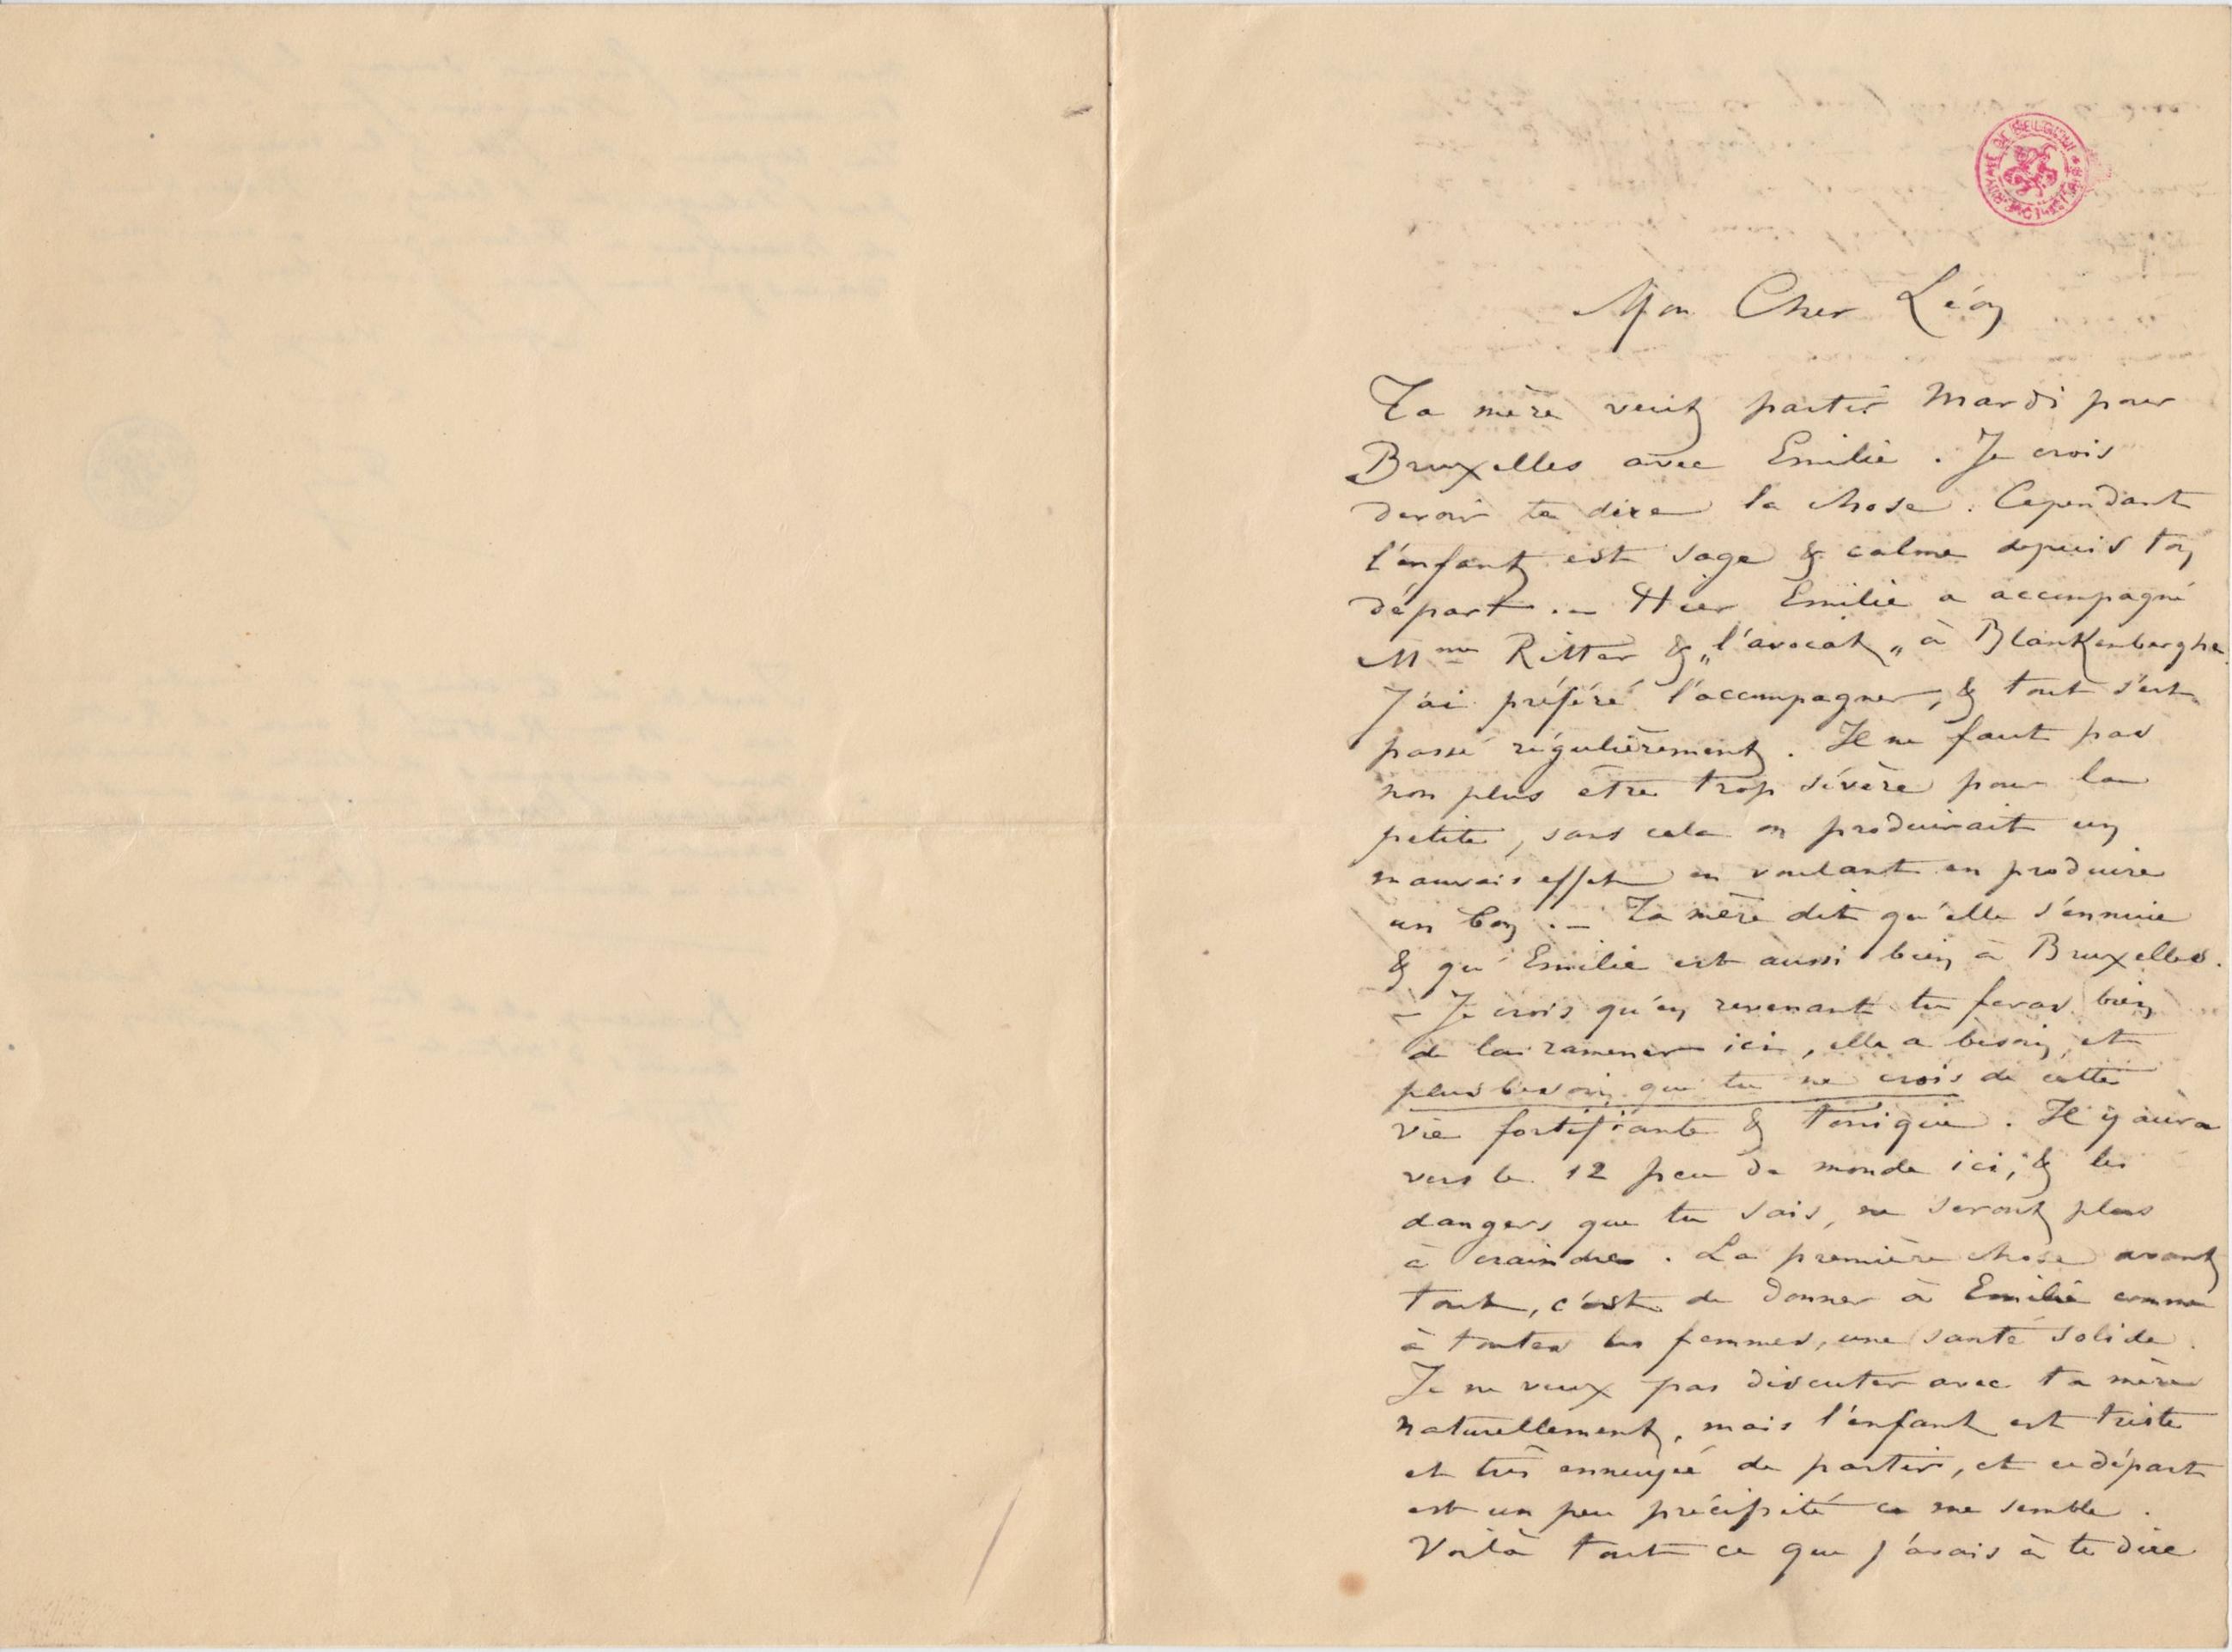 BIBLIOTHÈQUE ROYALE DE BELGIQUE
Mon Cher Léon
Ta mère veut partir Mardi pour
Bruxelles avec Emilie. Je crois
devoir te dire la chose. Cependant
l'enfant est sage & calme depuis ton
départ. – Hier Emilie a accompagné
Mme Ritter & „l'avocat„ à Blankenberghe.
J'ai préféré l'accompagner, & tout s'est
passé régulièrement. Il ne faut pas
non plus être trop sévère pour la
petite, sans cela on produirait un
mauvais effet en voulant en produire
un bon. – Ta mère dit qu'elle s'ennuie
& qu'Emilie est aussi bien à Bruxelles.
– Je crois qu'en revenant tu feras bien
de la ramener ici, elle a besoin, et
plus besoin que tu ne crois de cette
vie fortifiante & tonique. Il y aura
vers le 12 peu de monde ici, & les
dangers que tu sais, ne seront plus
à craindre. La première chose avant
tout, c'est de donner à Emilie comme
à toutes les femmes, une santé solide.
Je ne veux pas discuter avec ta mère
naturellement, mais l'enfant est triste
et très ennuyée de partir, et ce départ
est un peu précipité ce me semble.
Voilà tout ce que j'avais à te dire